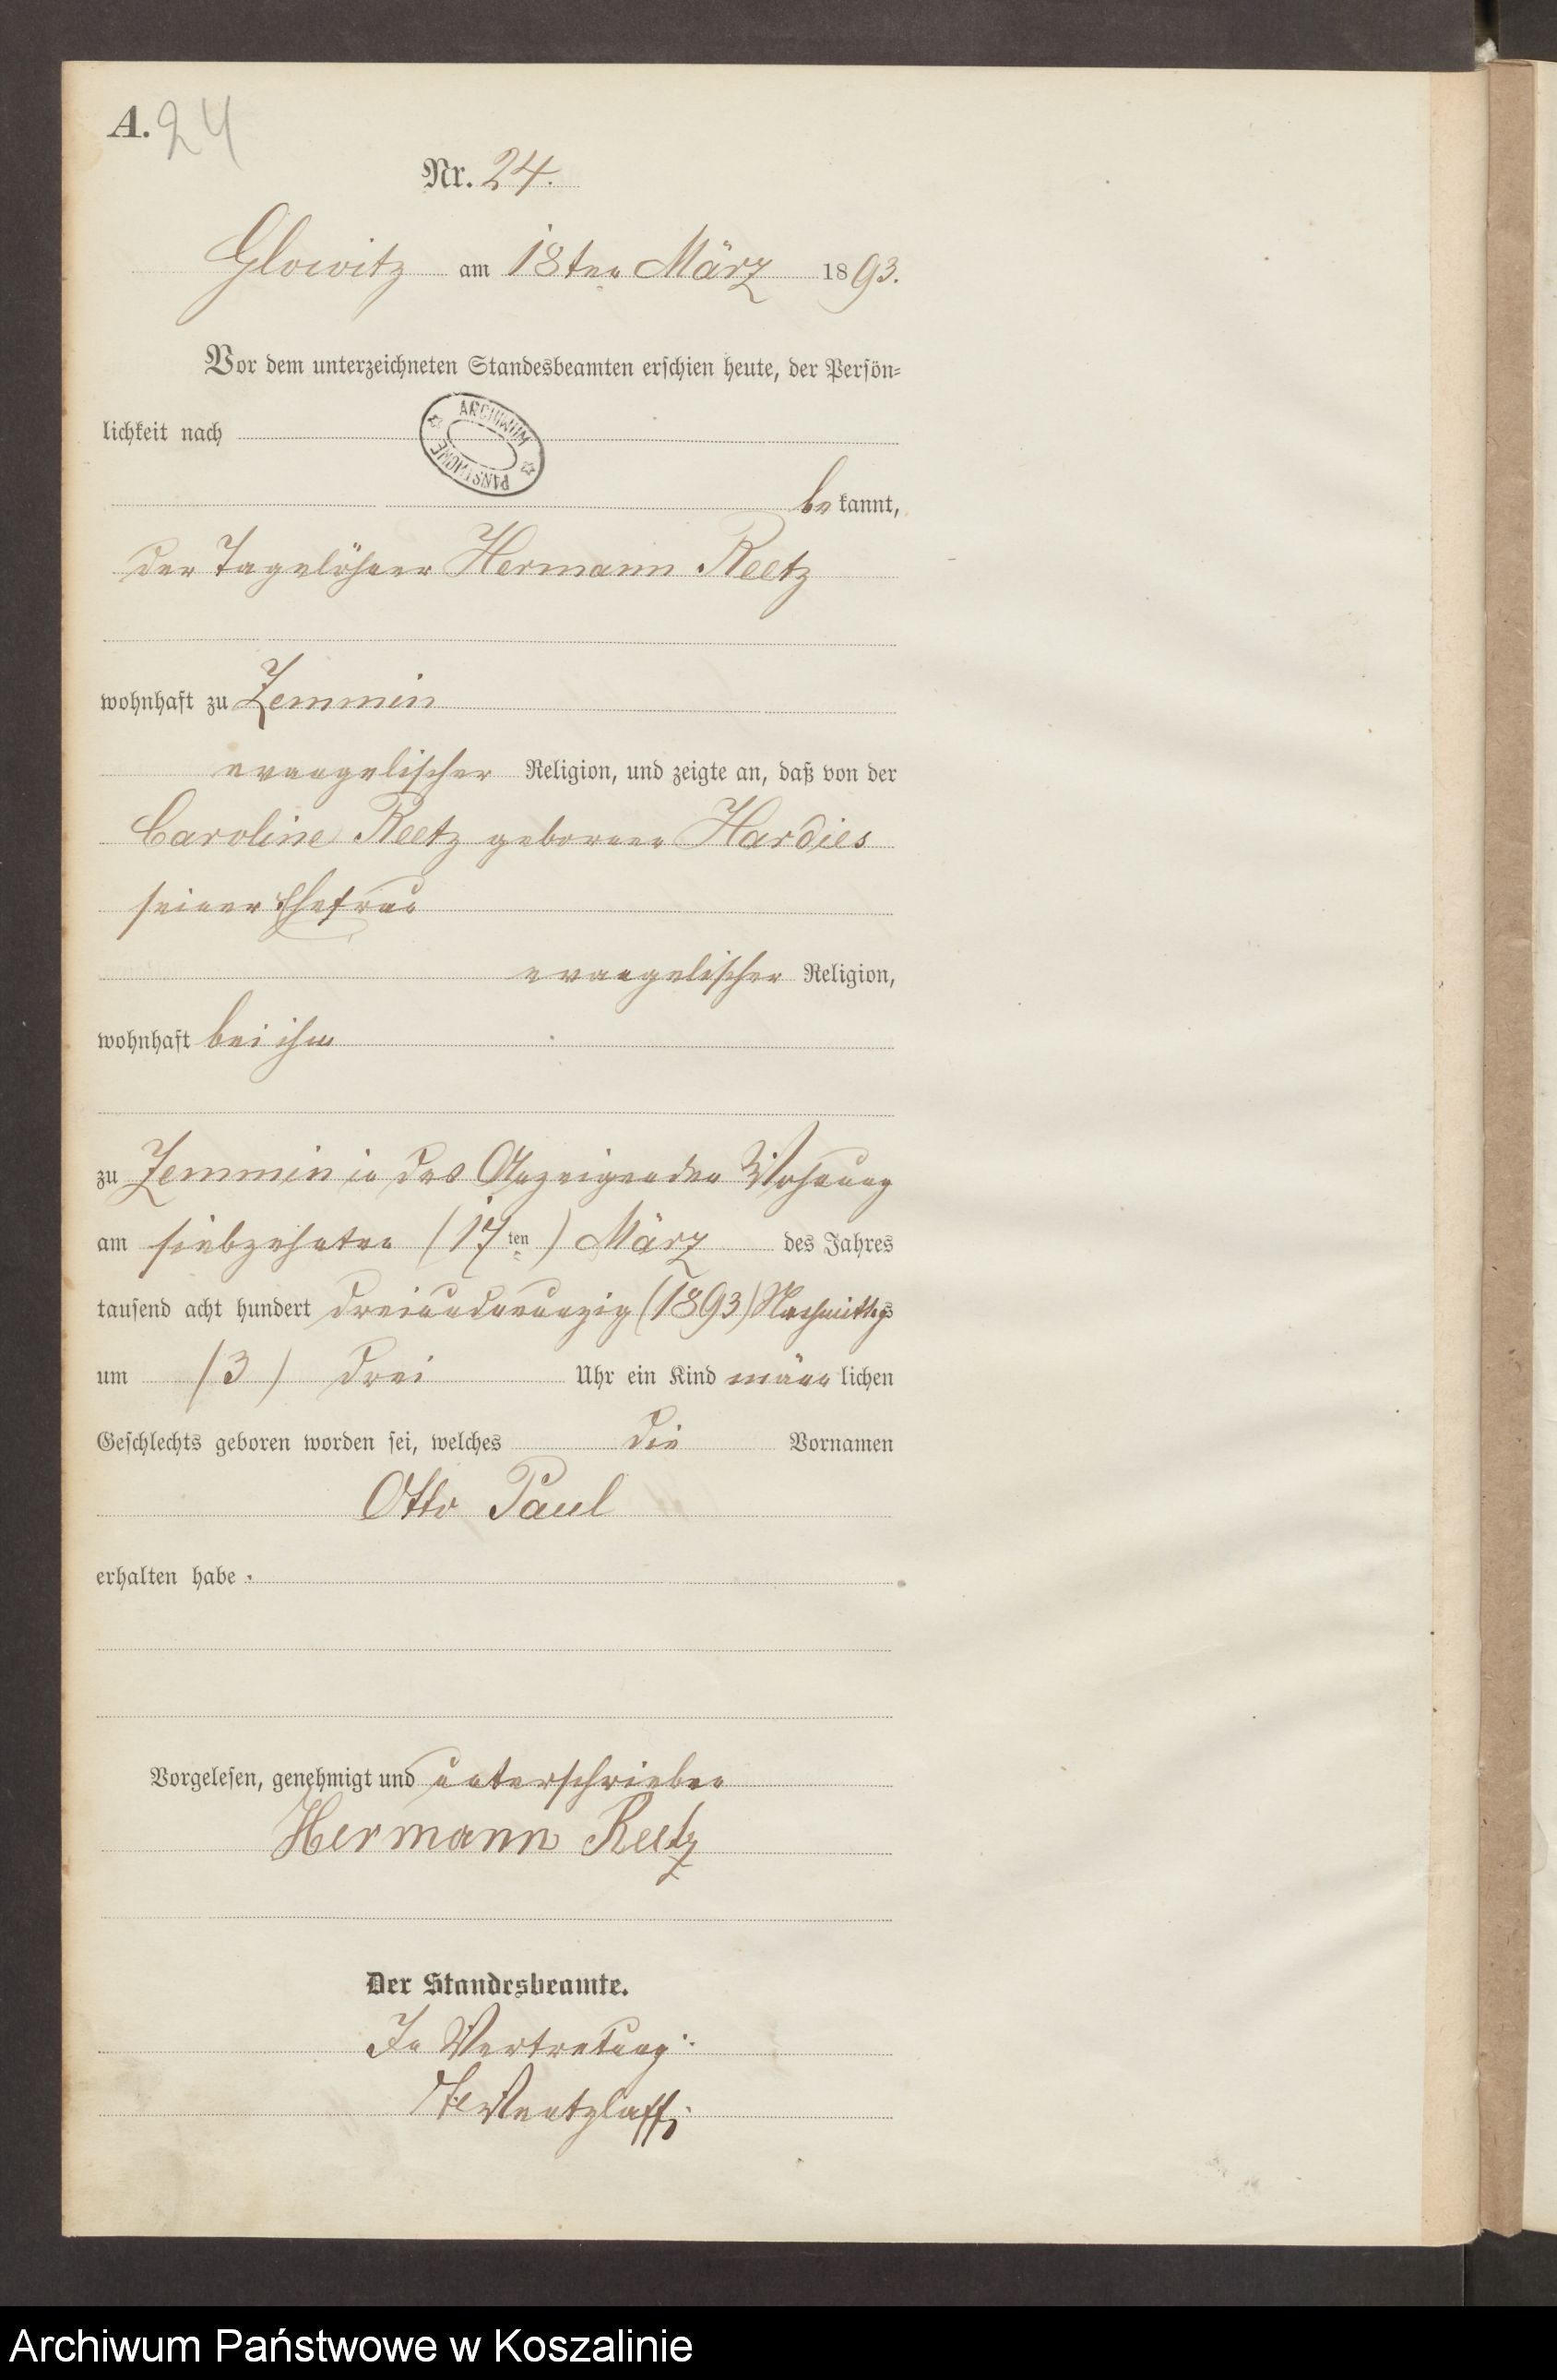 A. 24
Nr. 24.
Glowitz am 18ten März 1893.
Vor dem unterzeichneten Standesbeamten erschien heute, der Persön=
lichkeit nach
ARCHIWUM PAŃSTWOWE
bekannt,
der Tagelöhner Hermann Reetz
wohnhaft zu Zemmin
evangelischer Religion, und zeigte an, daß von der
Caroline Reetz geborenen Hardies
seiner Ehefrau
evangelischer Religion,
wohnhaft bei ihm
zu Zemmin in des Anzeigenden Wohnung
am siebzehnten (17ten) März des Jahres
tausend acht hundert dreiundneunzig (1893) Nachmittags
um (3) drei Uhr ein Kind männlichen
Geschlechts geboren worden sei, welches die Vornamen
Otto Paul
erhalten habe.
Vorgelesen, genehmigt und unterschrieben
Hermann Reetz
Der Standesbeamte.
In Vertretung:
Wentzlaff.
Archiwum Państwowe w Koszalinie